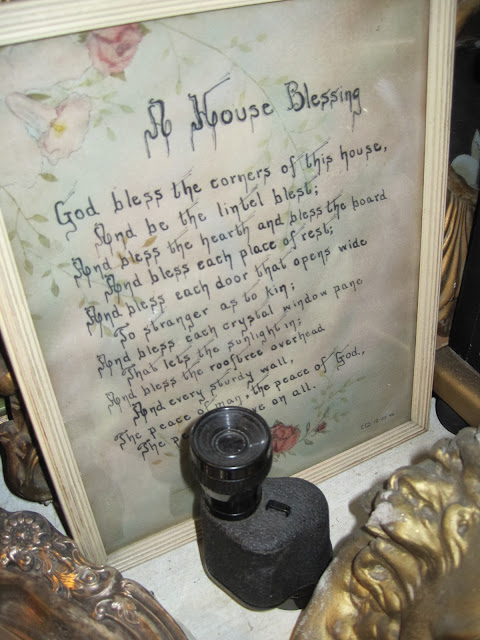 A House Blessing
God bless the corners of this house,
And be the lintel blest;
And bless the hearth and bless the board
And bless each place of rest;
And bless each door that opens wide
To stranger as to kin;
And bless each crystal window pane
That lets the sunlight in;
And bless the rooftree overhead
And every sturdy wall,
The peace of man, the peace of God,
The on all.